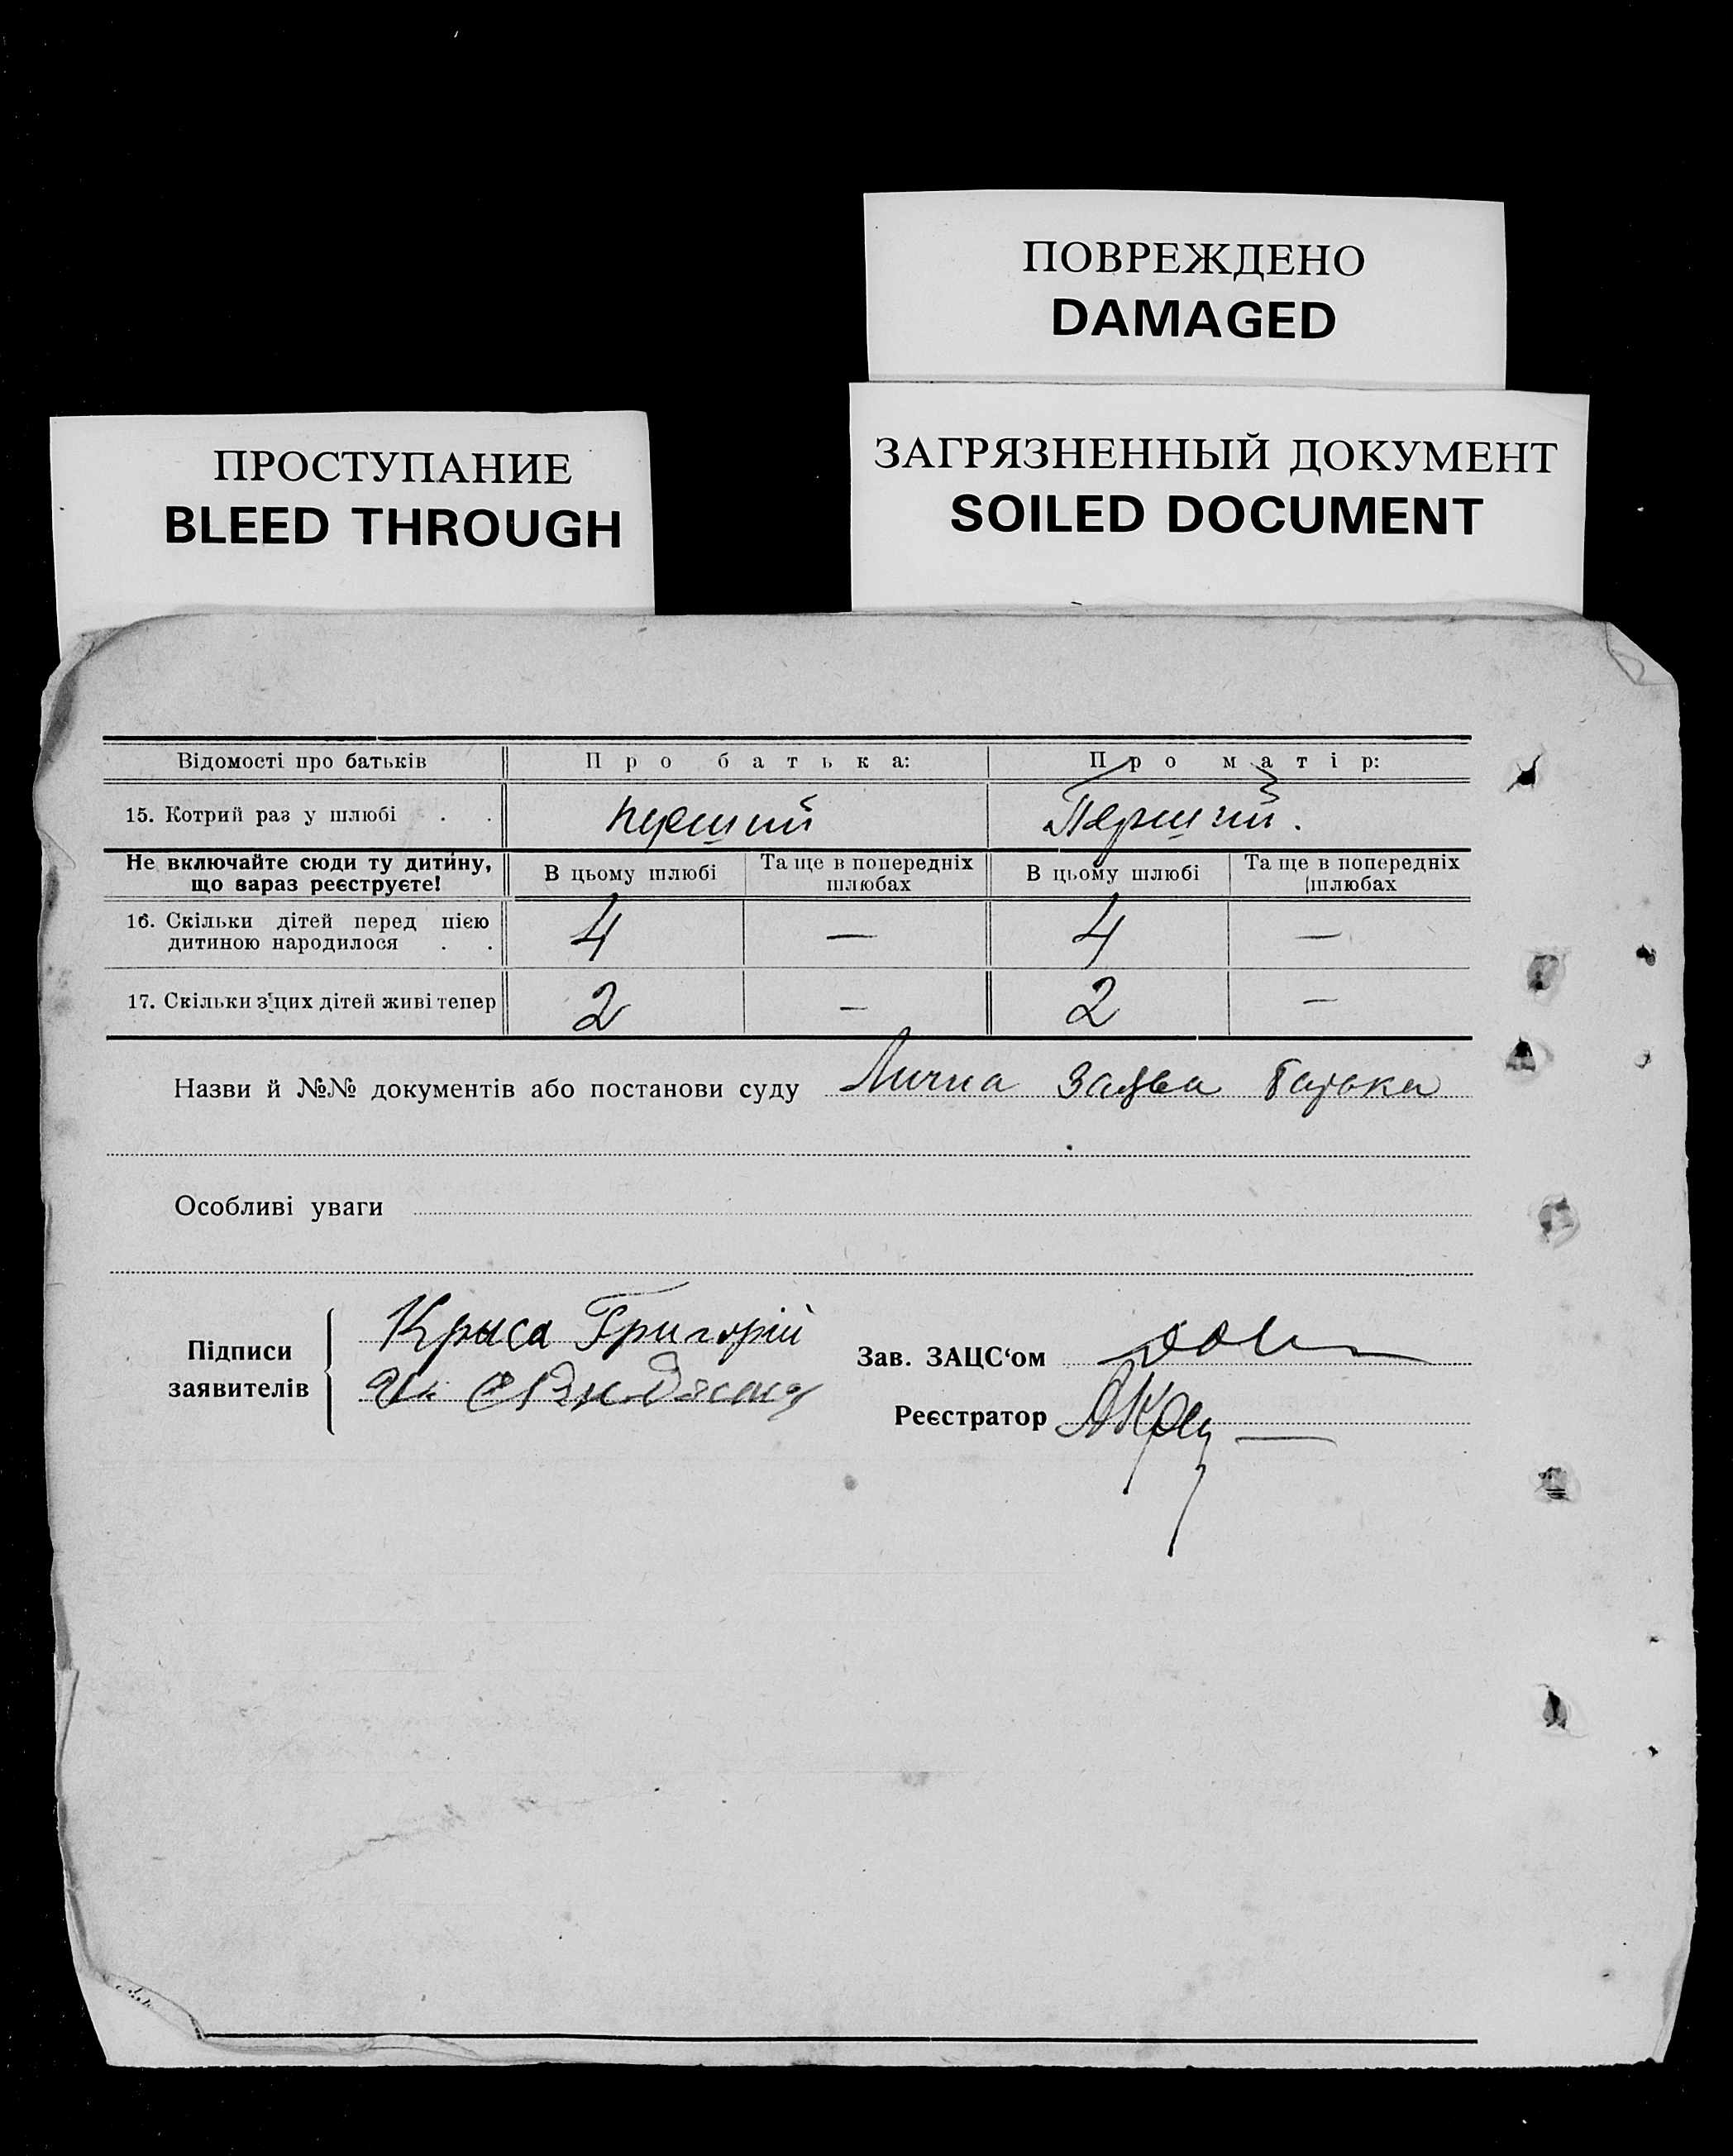 ПОВРЕЖДЕНО
DAMAGED
ПРОСТУПАНИЕ
BLEED THROUGH
ЗАГРЯЗНЕННЫЙ ДОКУМЕНТ
SOILED DOCUMENT
Відомості про батьків Про батька: Про матір:
15. Котрий раз у шлюбі . . перший Перший.
Не включайте сюди ту дитину, що зараз реєструєте! В цьому шлюбі Та ще в попередніх шлюбах В цьому шлюбі Та ще в попередніх шлюбах
16. Скільки дітей перед цією дитиною народилося . . 4 — 4 —
17. Скільки з цих дітей живі тепер 2 — 2 —
Назви й №№ документів або постанови суду Лична заява батька
Особливі уваги
Підписи заявителів
Крыса Григорій
Зав. ЗАЦС‘ом
Реєстратор